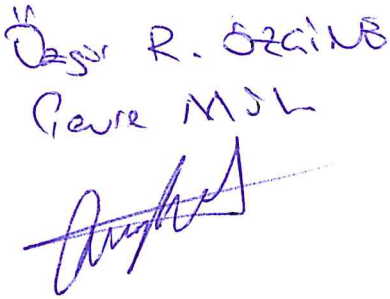 Özgür R. ÖZGİNÖ
Çevre MÜH